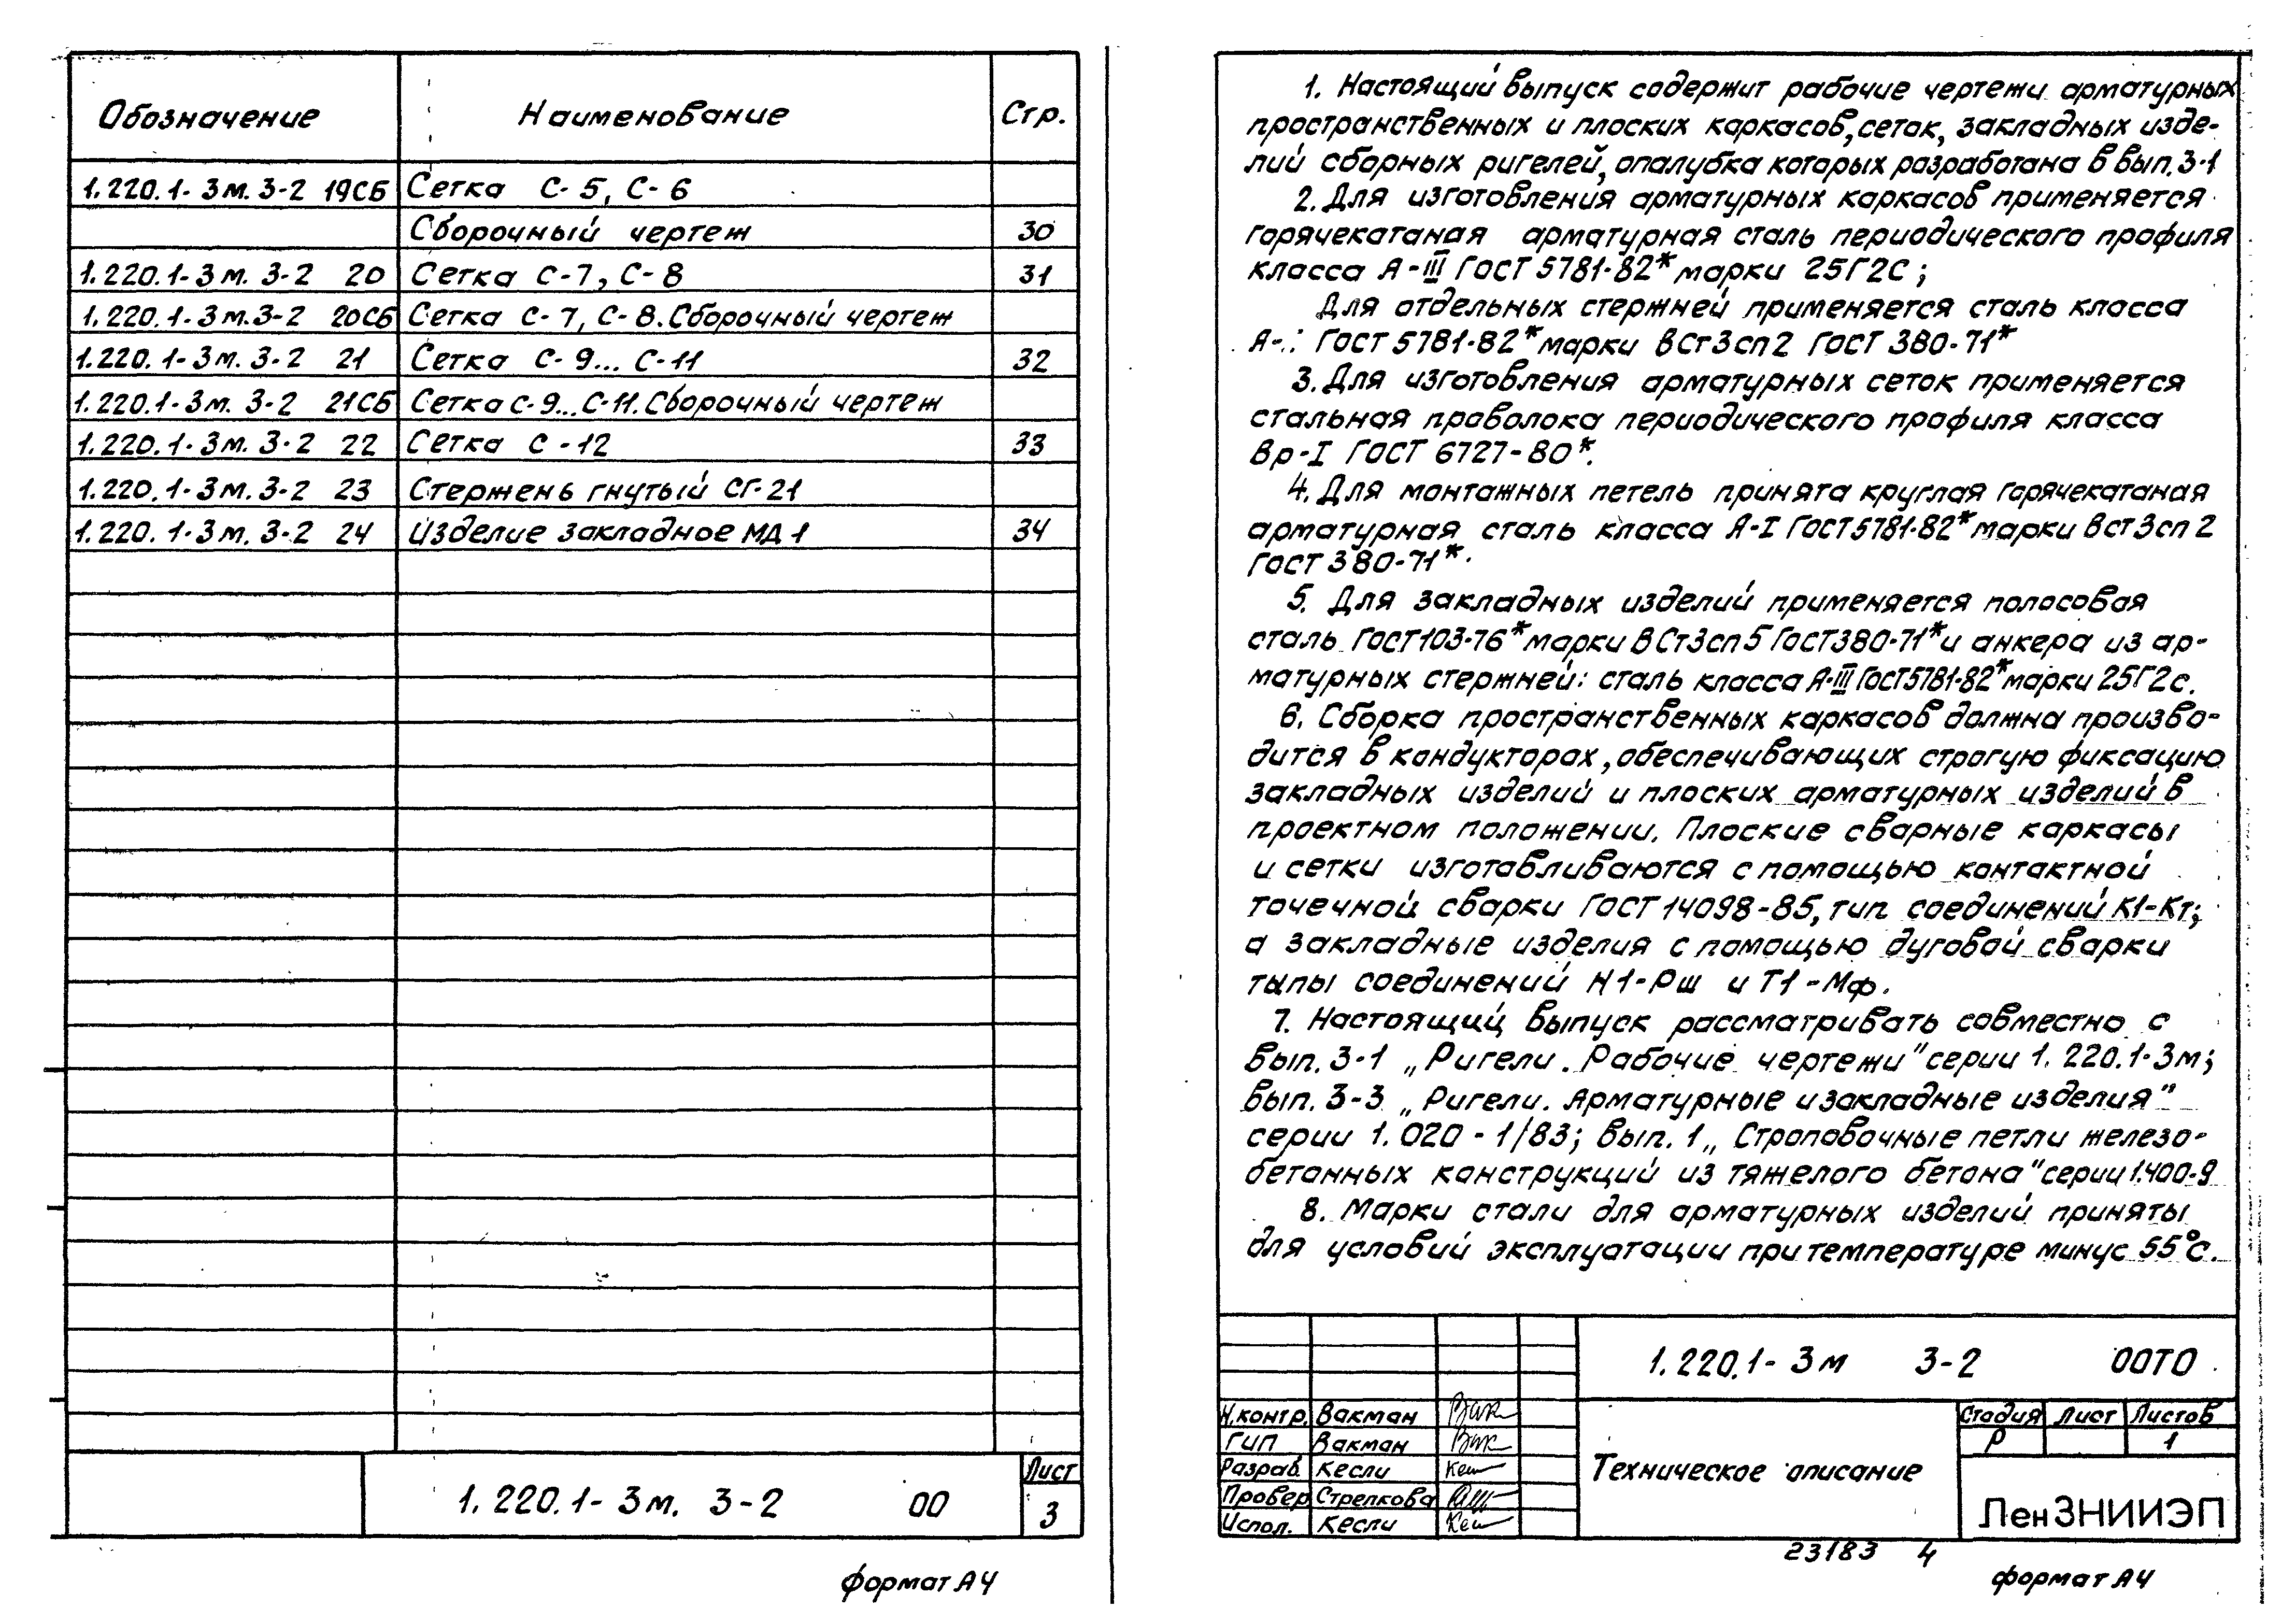 Обозначение Наименование Стр.
1.220.1-3м.3-2 19СБ Сетка С-5, С-6
Сборочный чертеж 30
1.220.1-3м.3-2 20 Сетка С-7, С-8 31
1.220.1-3м.3-2 20СБ Сетка С-7, С-8. Сборочный чертеж
1.220.1-3м.3-2 21 Сетка С-9...С-11 32
1.220.1-3м.3-2 21СБ Сетка С-9...С-11. Сборочный чертеж
1.220.1-3м.3-2 22 Сетка С-12 33
1.220.1-3м.3-2 23 Стержень гнутый СГ-21
1.220.1-3м.3-2 24 Изделие закладное МД1 34
Лист
1.220.1-3м. 3-2 00 3
формат А4
1. Настоящий выпуск содержит рабочие чертежи арматурных
пространственных и плоских каркасов, сеток, закладных изде-
лий сборных ригелей, опалубка которых разработана в вып. 3-1
2. Для изготовления арматурных каркасов применяется
горячекатаная арматурная сталь периодического профиля
класса А-III ГОСТ 5781-82* марки 25Г2С;
Для отдельных стержней применяется сталь класса
ГОСТ 5781-82* марки ВСт3сп2 ГОСТ 380-71*
3. Для изготовления арматурных сеток применяется
стальная проволока периодического профиля класса
Вр-I ГОСТ 6727-80*.
4. Для монтажных петель принята круглая горячекатаная
арматурная сталь класса А-I ГОСТ 5781-82* марки ВСт3сп2
ГОСТ 380-71*.
5. Для закладных изделий применяется полосовая
сталь ГОСТ 103-76* марки ВСт3сп5 ГОСТ 380-71* и анкера из ар-
матурных стержней: сталь класса А-III ГОСТ 5781-82* марки 25Г2с.
6. Сборка пространственных каркасов должна произво-
дится в кондукторах, обеспечивающих строгую фиксацию
закладных изделий и плоских арматурных изделий в
проектном положении. Плоские сварные каркасы
и сетки изготавливаются с помощью контактной
точечной сварки ГОСТ 14098-85, тип соединений К1-Кт;
а закладные изделия с помощью дуговой сварки
типы соединений Н1-Рш и Т1-Мф.
7. Настоящий выпуск рассматривать совместно с
вып. 3-1 „Ригели. Рабочие чертежи" серии 1.220.1-3м;
вып. 3-3 „Ригели. Арматурные и закладные изделия"
серии 1.020-1/83; вып. 1 „Строповочные петли железо-
бетонных конструкций из тяжелого бетона" серии 1.400-9
8. Марки стали для арматурных изделий приняты
для условий эксплуатации при температуре минус 55°С.
1.220.1-3м 3-2 00ТО
Н.контр. Вакман Вак
ГИП Вакман Вак
Разраб. Кесли Кес
Провер Стрелкова
Испол. Кесли Кес
Техническое описание
Стадия Лист Листов
Р 1
ЛенЗНИИЭП
23183 4
формат А4